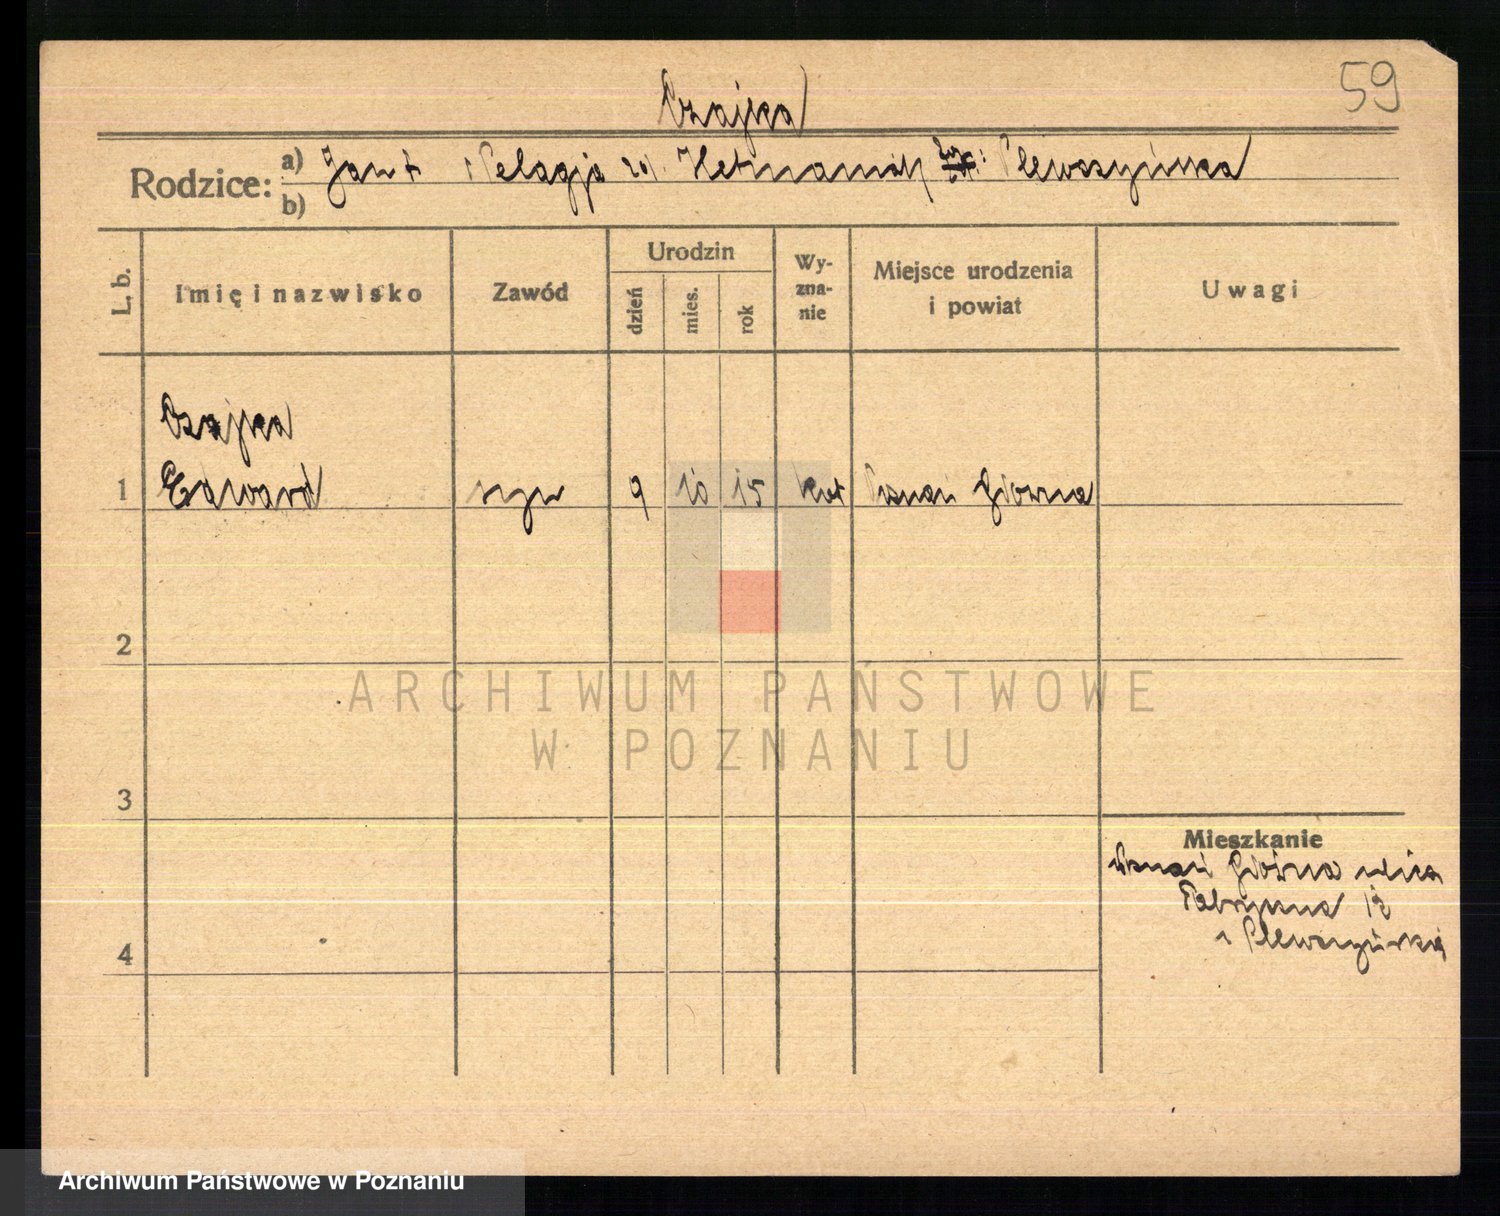 59
Czajka
Rodzice: a) Jan † i Pelagja zd. Hetmaniak
b) Plewczyńska
L. b. Imię i nazwisko Zawód Urodzin dzień mies. rok Wy-zna-nie Miejsce urodzenia i powiat Uwagi
Czajka
1 Edward syn 9 10 15 kat Poznań Główna
2
ARCHIWUM PAŃSTWOWE
W POZNANIU
3
Mieszkanie
Poznań Główna ulica
Fabryczna 12
4
Archiwum Państwowe w Poznaniu